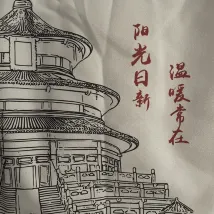 阳光日新
温暖常在